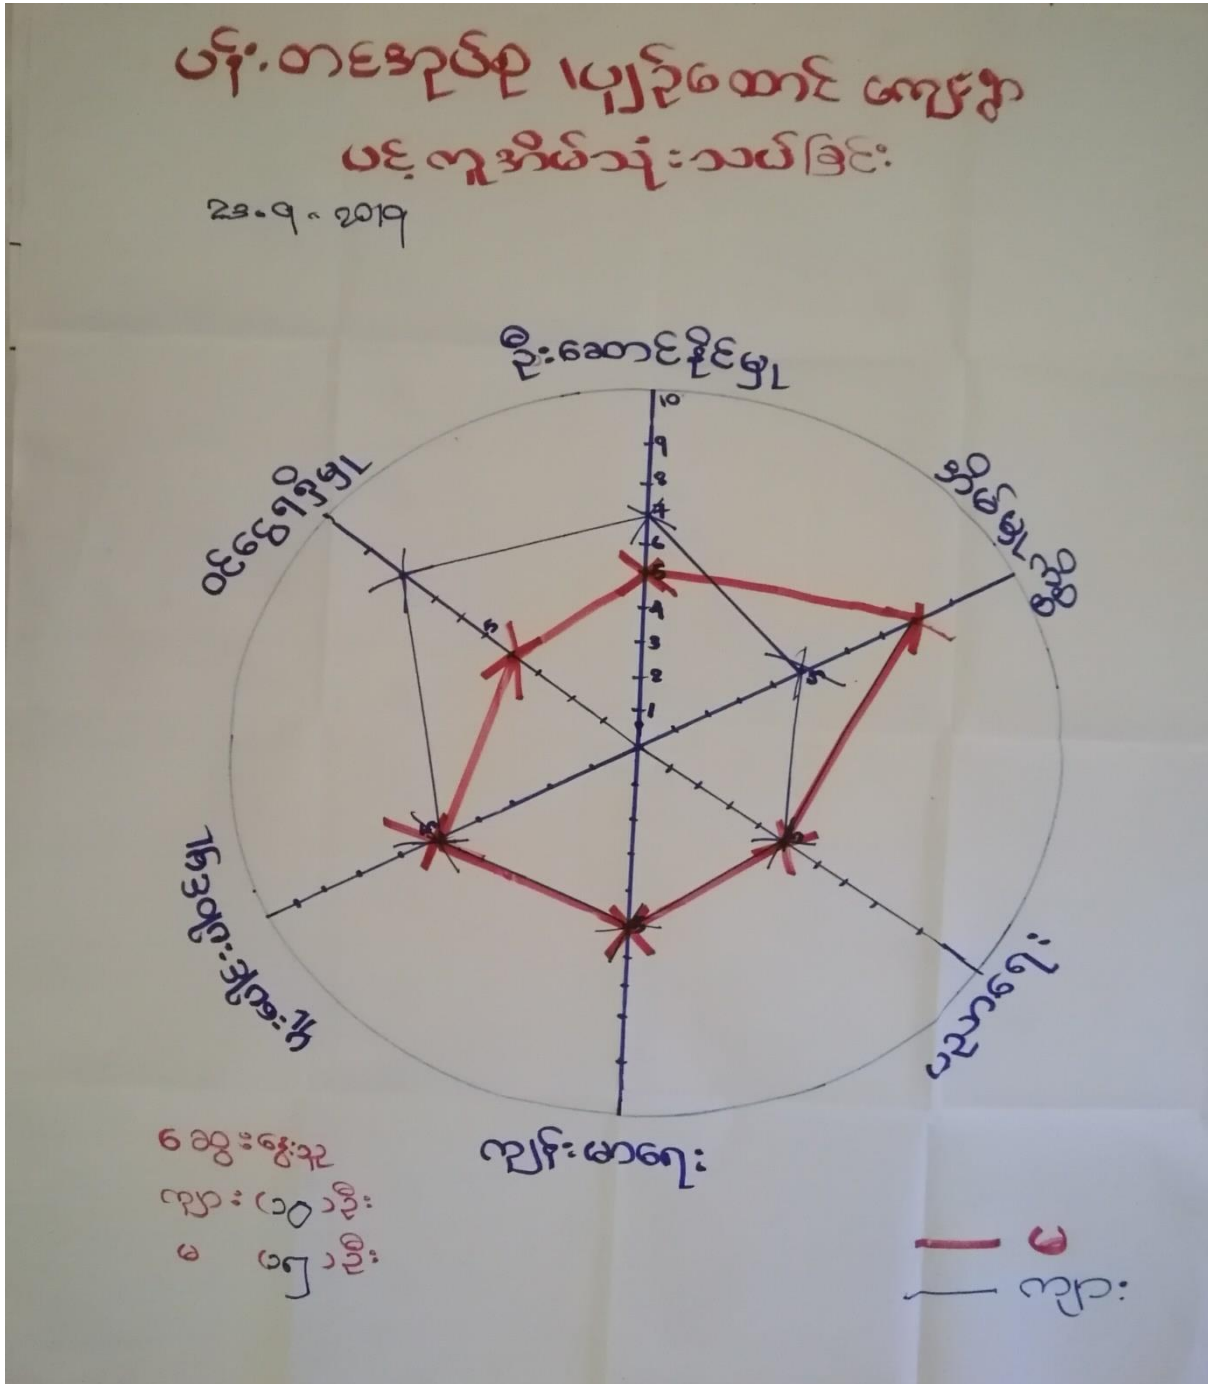 ပန်းတင်အုပ်စု ပျဉ်ထောင် ကျေးရွာ
ပင့်ကူအိမ်သုံးသပ်ခြင်း
23.9.2019
ဦးဆောင်နိုင်မှု
အိမ်မှုကိစ္စ
ပညာရေး
ကျန်းမာရေး
ပူးပေါင်းပါဝင်မှု
ဝင်ငွေရရှိမှု
10
9
8
7
6
5
4
3
2
1
5
5
5
5
5
ဆွေးနွေးသူ
ကျား (၁၀) ဦး
မ (၁၅) ဦး
မ
ကျား